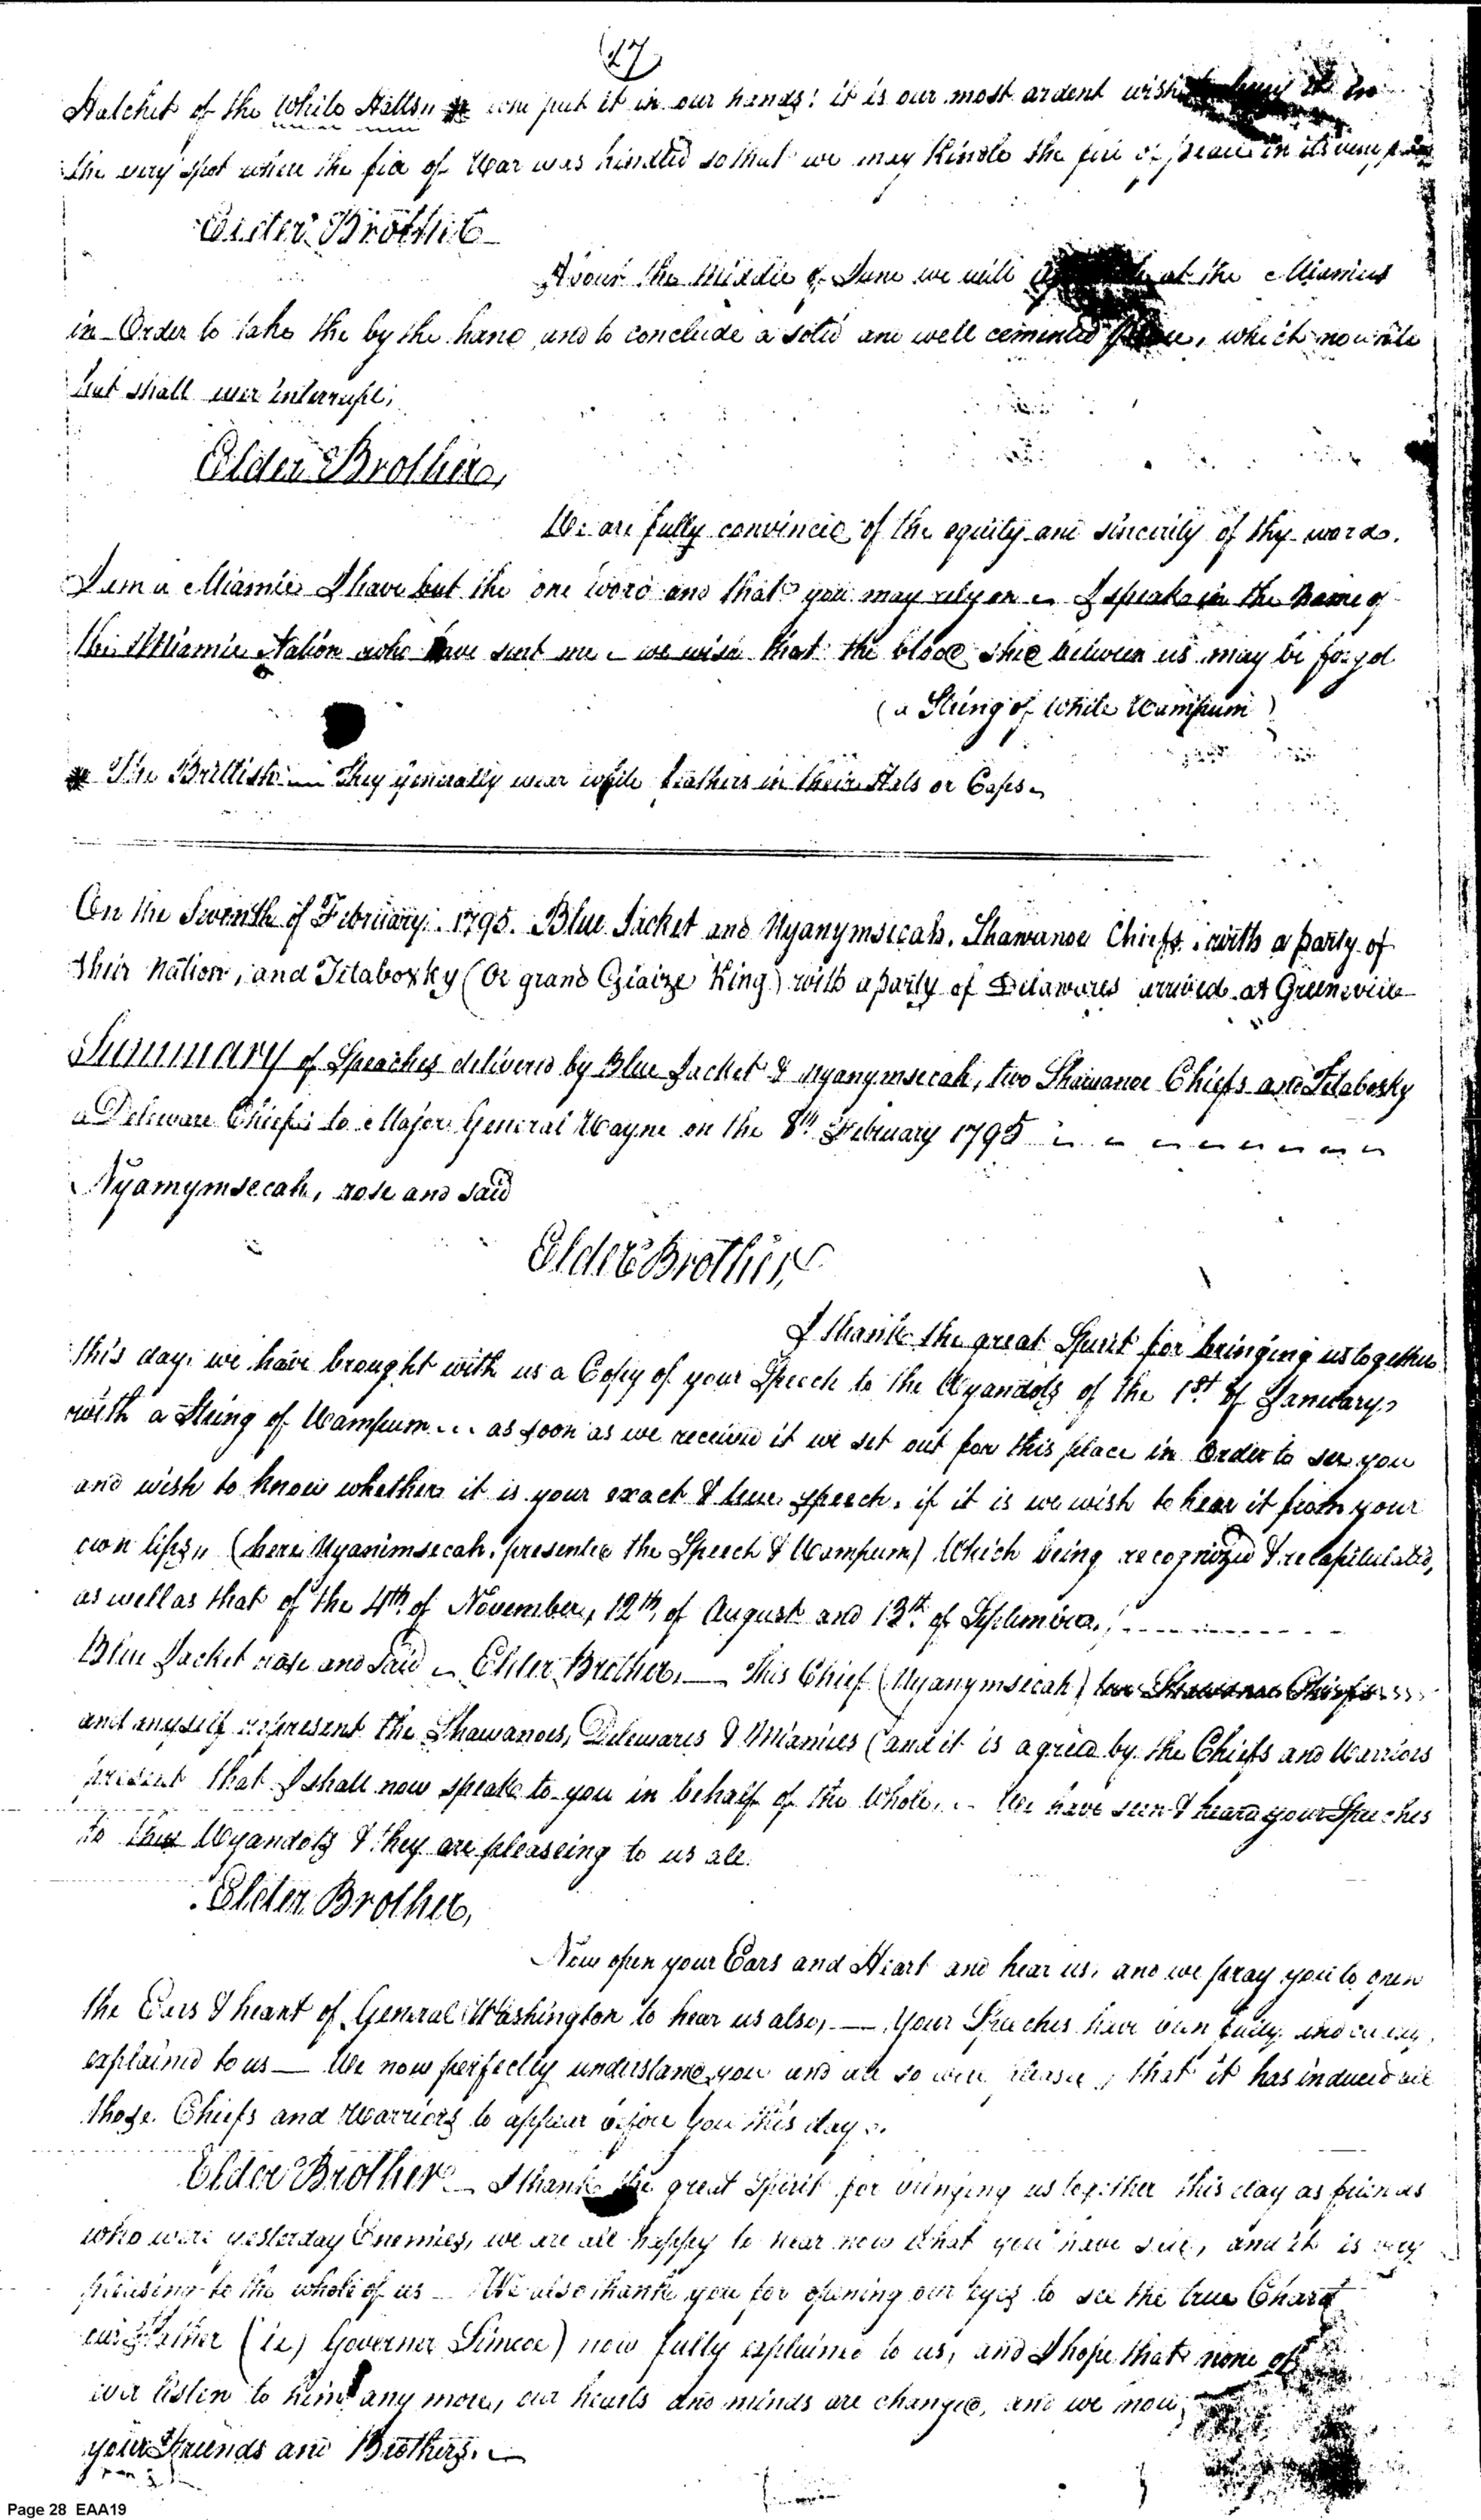 (27)
Hatchet of the White Hatts * who put it in our hands! it is our most ardent wish
the very spot where the fire of War was kindled so that we may Kindle the fire of peace in its very
Elder Brother
About the Middle of June we will at the Miamies
in Order to take the by the hand and to conclude a solid and well cemented peace, which
but shall ever interrupt;
Elder Brother,
We are fully convinced of the equity and sincerity of thy words.
I am a Miamie I have but the one word and that you may rely on I speak in the name of
the Miamie Nation who have sent me we wish that the blood shed between us may be forgd
(a String of White Wampum)
* The Brittish They generally wear while feathers in their Hats or Caps
On the Seventh of February 1795. Blue Jacket and Nyanymsecah, Shawanoe Chiefs with a party of
their Nation, and Tetaboxky (Or grand Glaize King) with a party of Delawares arrived at Greeneville
Summary of Speaches delivered by Blue Jacket & Nyanymsecah, two Shawanoe Chiefs and Tetabosky
a Deleware Chief to Major General Wayne on the 8th February 1795
Nyamymsecah, rose and said
Elder Brother,
I thank the great Spirit for bringing us together
this day, we have brought with us a Copy of your Speech to the Wyandots of the 1st of January,
with a String of Wampum as soon as we received it we set out for this place in Order to see you
and wish to know whether it is your exact & true speech, if it is we wish to hear it from your
own lips,, (here Nyanimsecah, presented the Speech & Wampum) Which being recognized & recapitulated,
as well as that of the 4th of November, 12th of August and 13th of September,
Blue Jacket rose and said Elder Brother, This Chief (Nyanymsecah) two Shawanoe Chiefs
and myself represent the Shawanoes, Delewares & Miamies (and it is agreed by the Chiefs and Warriors
present that I shall now speak to you in behalf of the Whole, We have seen & heard your Speeches
to the Wyandots & they are pleaseing to us all.
Elder Brother,
Now open your Ears and Heart and hear us, and we pray you to open
the Ears & heart of General Washington to hear us also, — Your Speeches have been fully and
explained to us — We now perfectly understand you and are so well please, that it has induced all
those Chiefs and Warriors to appear before you this day
Elder Brother — I thank the great Spirit for bringing us together this day as friends
who were yesterday Enemies, we are all happy to hear now what you have said, and it is very
pleasing to the whole of us — We also thank you for opening our eyes to see the true Charact
our Father (ie) Governor Simcoe) now fully explained to us, and I hope that none of
ever listen to him any more, our hearts and minds are changed, and we now
your Friends and Brothers.
Page 28 EAA19